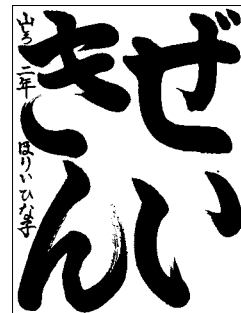 ぜい
きん
二年 ほりい ひな子